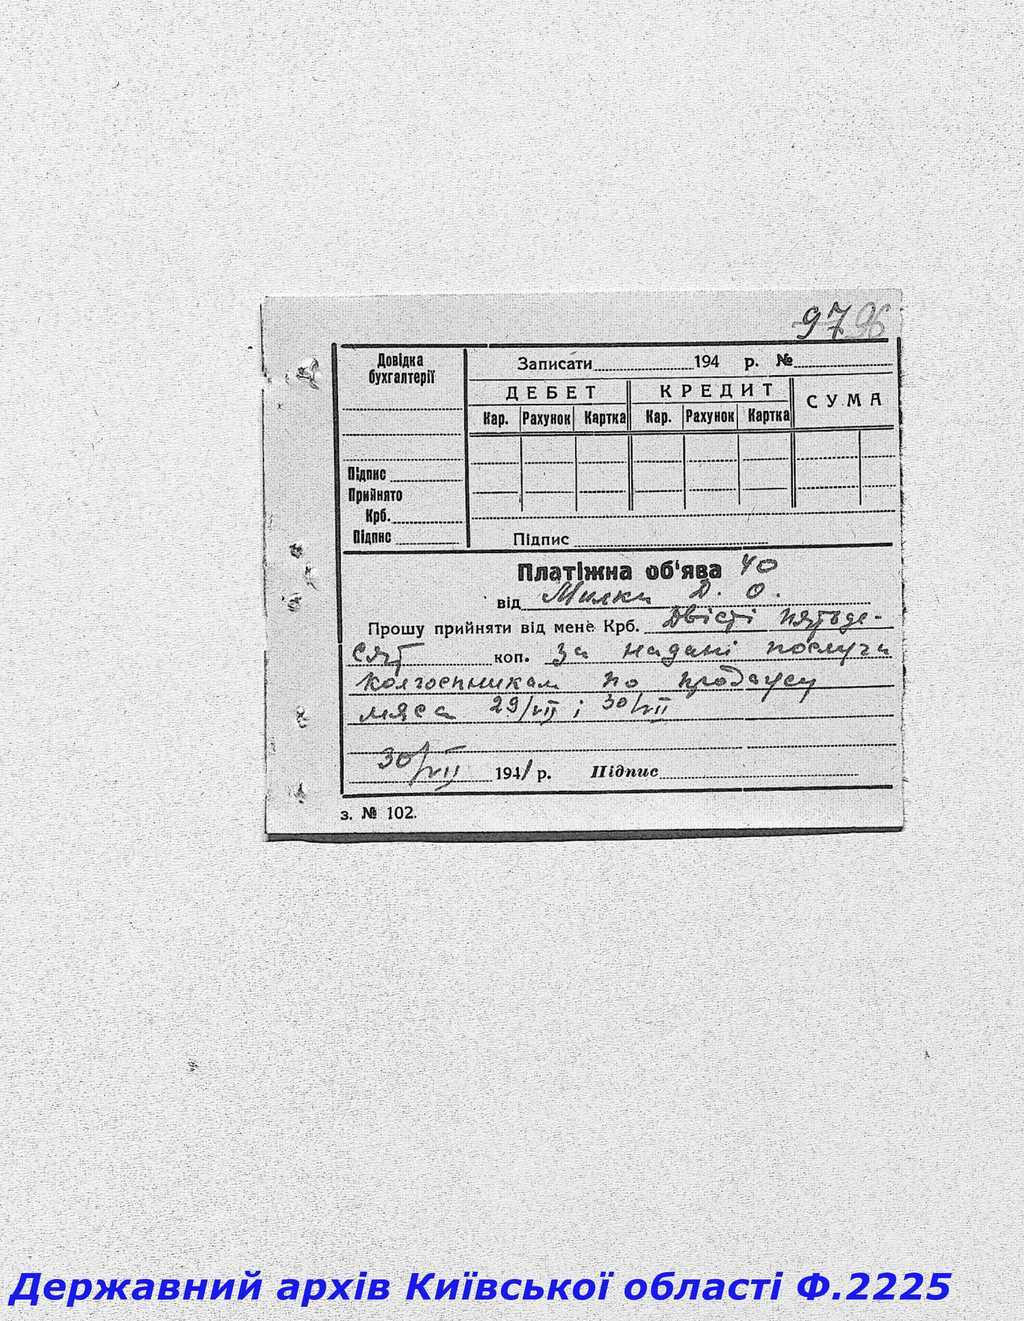 97 96
Довідка
бухгалтерії
Підпис
Прийнято
Крб.
Підпис
Записати 194 р. №
ДЕБЕТ КРЕДИТ СУМА
Кар. Рахунок Картка Кар. Рахунок Картка
Підпис
Платіжна об'ява 40
від Милки Д. О.
Прошу прийняти від мене Крб. Двісті пятьде-
сят коп. за надані послуги
колгоспникам по продажу
мяса 29/VII і 30/VII
30/VII 1941 р. Підпис
з. № 102.
Державний архів Київської області Ф.2225